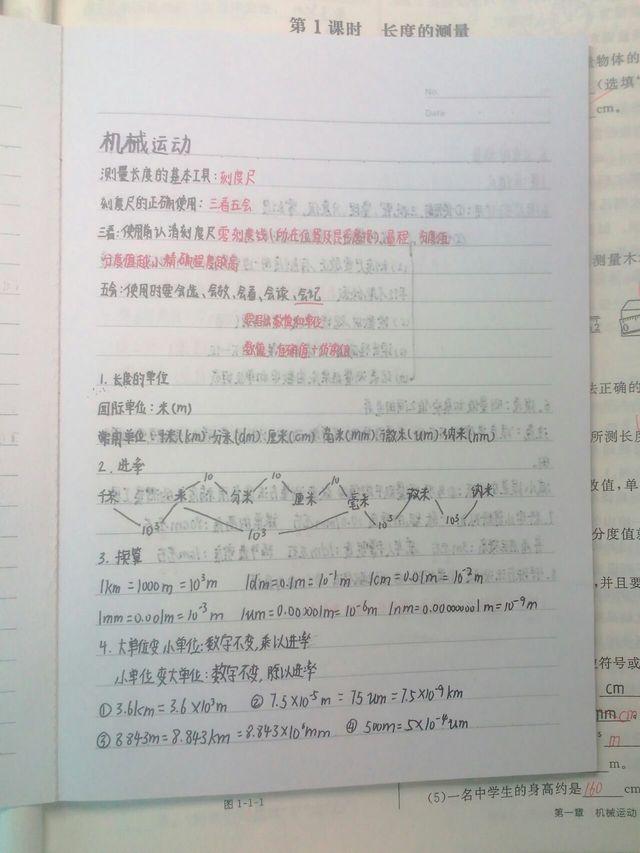 第1课时 长度的测量
No.
Date
机械运动
测量长度的基本工具：刻度尺
刻度尺的正确使用：三看五会
三看：使用前认清刻度尺零刻度线(所在位置及是否磨损)、量程、分度值
分度值越小精确程度越高
五会：使用时要会选、会放、会看、会读、会记
要写出数值和单位
数值：准确值+估读值
1. 长度的单位
国际单位：米(m)
常用单位：千米(km) 分米(dm) 厘米(cm) 毫米(mm) 微米(um) 纳米(nm)
2. 进率
10 10 10
千米 米 分米 厘米 毫米 微米 纳米
10³ 10³ 10³ 10³
3. 换算
1km=1000m=10³m 1dm=0.1m=10⁻¹m 1cm=0.01m=10⁻²m
1mm=0.001m=10⁻³m 1um=0.000001m=10⁻⁶m 1nm=0.000000001m=10⁻⁹m
4. 大单位变小单位：数字不变，乘以进率
小单位变大单位：数字不变，除以进率
① 3.6km=3.6×10³m ② 7.5×10⁻⁵m=75um=7.5×10⁻⁹km
③ 8843m=8.843km=8.843×10⁶mm ④ 500m=5×10⁻⁴um
图 1-1-1
物体的
(选填"
cm。
测量木
法正确的
所测长度
数值，单
分度值
并且要
符号或
cm
m
m。
(5)一名中学生的身高约是160cm
第一章 机械运动